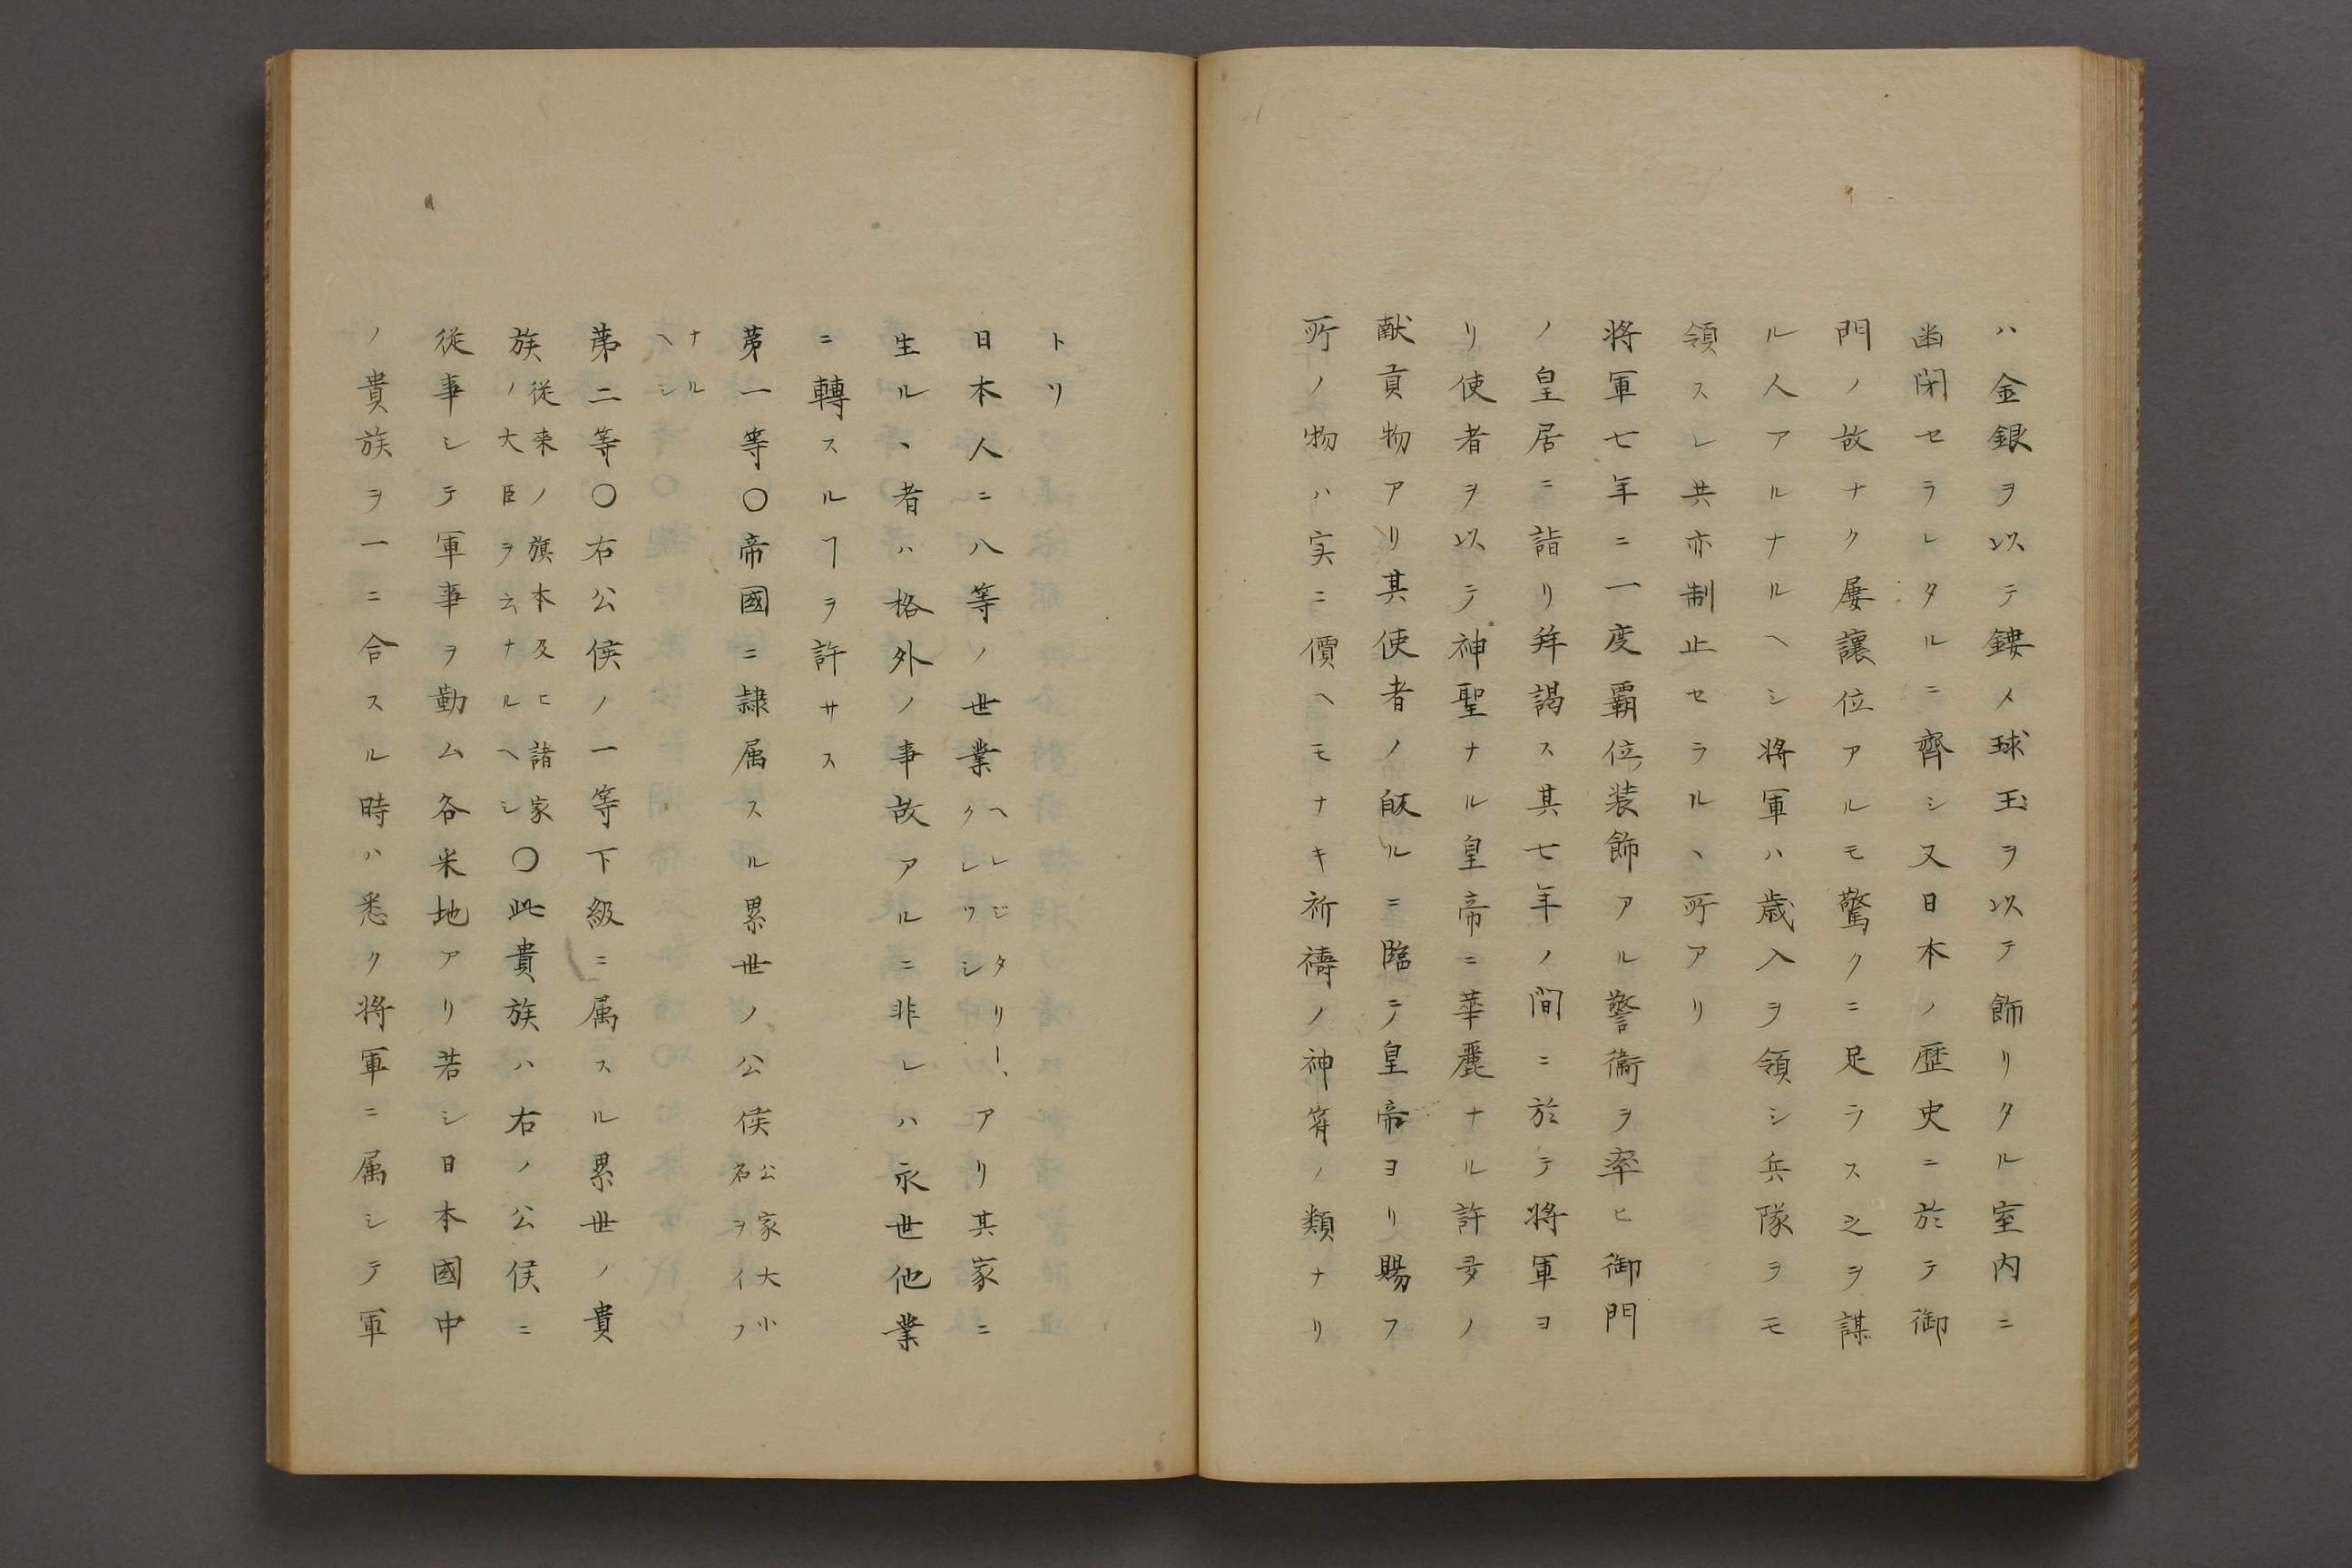 ハ金銀ヲ以テ鏤メ球玉ヲ以テ飾リタル室内ニ
凾閉セラレタルニ齊シ又日本ノ歴史ニ於テ御
門ノ故ナク屡讓位アルモ驚クニ足ラス之ヲ謀
ル人アルナルヘシ将軍ハ歳入ヲ領シ兵隊ヲモ
領スレ共亦制止セラルヽ所アリ
将軍七年ニ一度覇位装飾アル警衞ヲ率ヒ御門
ノ皇居ニ詣リ拜謁ス其七年ノ間ニ於テ将軍ヨ
リ使者ヲ以テ神聖ナル皇帝ニ華麗ナル許多ノ
献貢物アリ其使者ノ皈ルニ臨テ皇帝ヨリ賜フ
所ノ物ハ実ニ價ヘモナキ祈禱ノ神符ノ類ナリ
トリ
日本人ニ八等ノ世業ヘレジタリー、クレウシアリ其家ニ
生ルヽ者ハ格外ノ事故アルニ非レハ永世他業
ニ轉スルヿヲ許サス
第一等〇帝國ニ隷属スル累世ノ公侯公家大小名ヲイフ
ナルヘシ
第二等〇右公侯ノ一等下級ニ属スル累世ノ貴
族従来ノ旗本及ヒ諸家ノ大臣ヲ云ナルヘシ〇此貴族ハ右ノ公侯ニ
従事シテ軍事ヲ勤ム各采地アリ若シ日本國中
ノ貴族ヲ一ニ合スル時ハ悉ク将軍ニ属シテ軍